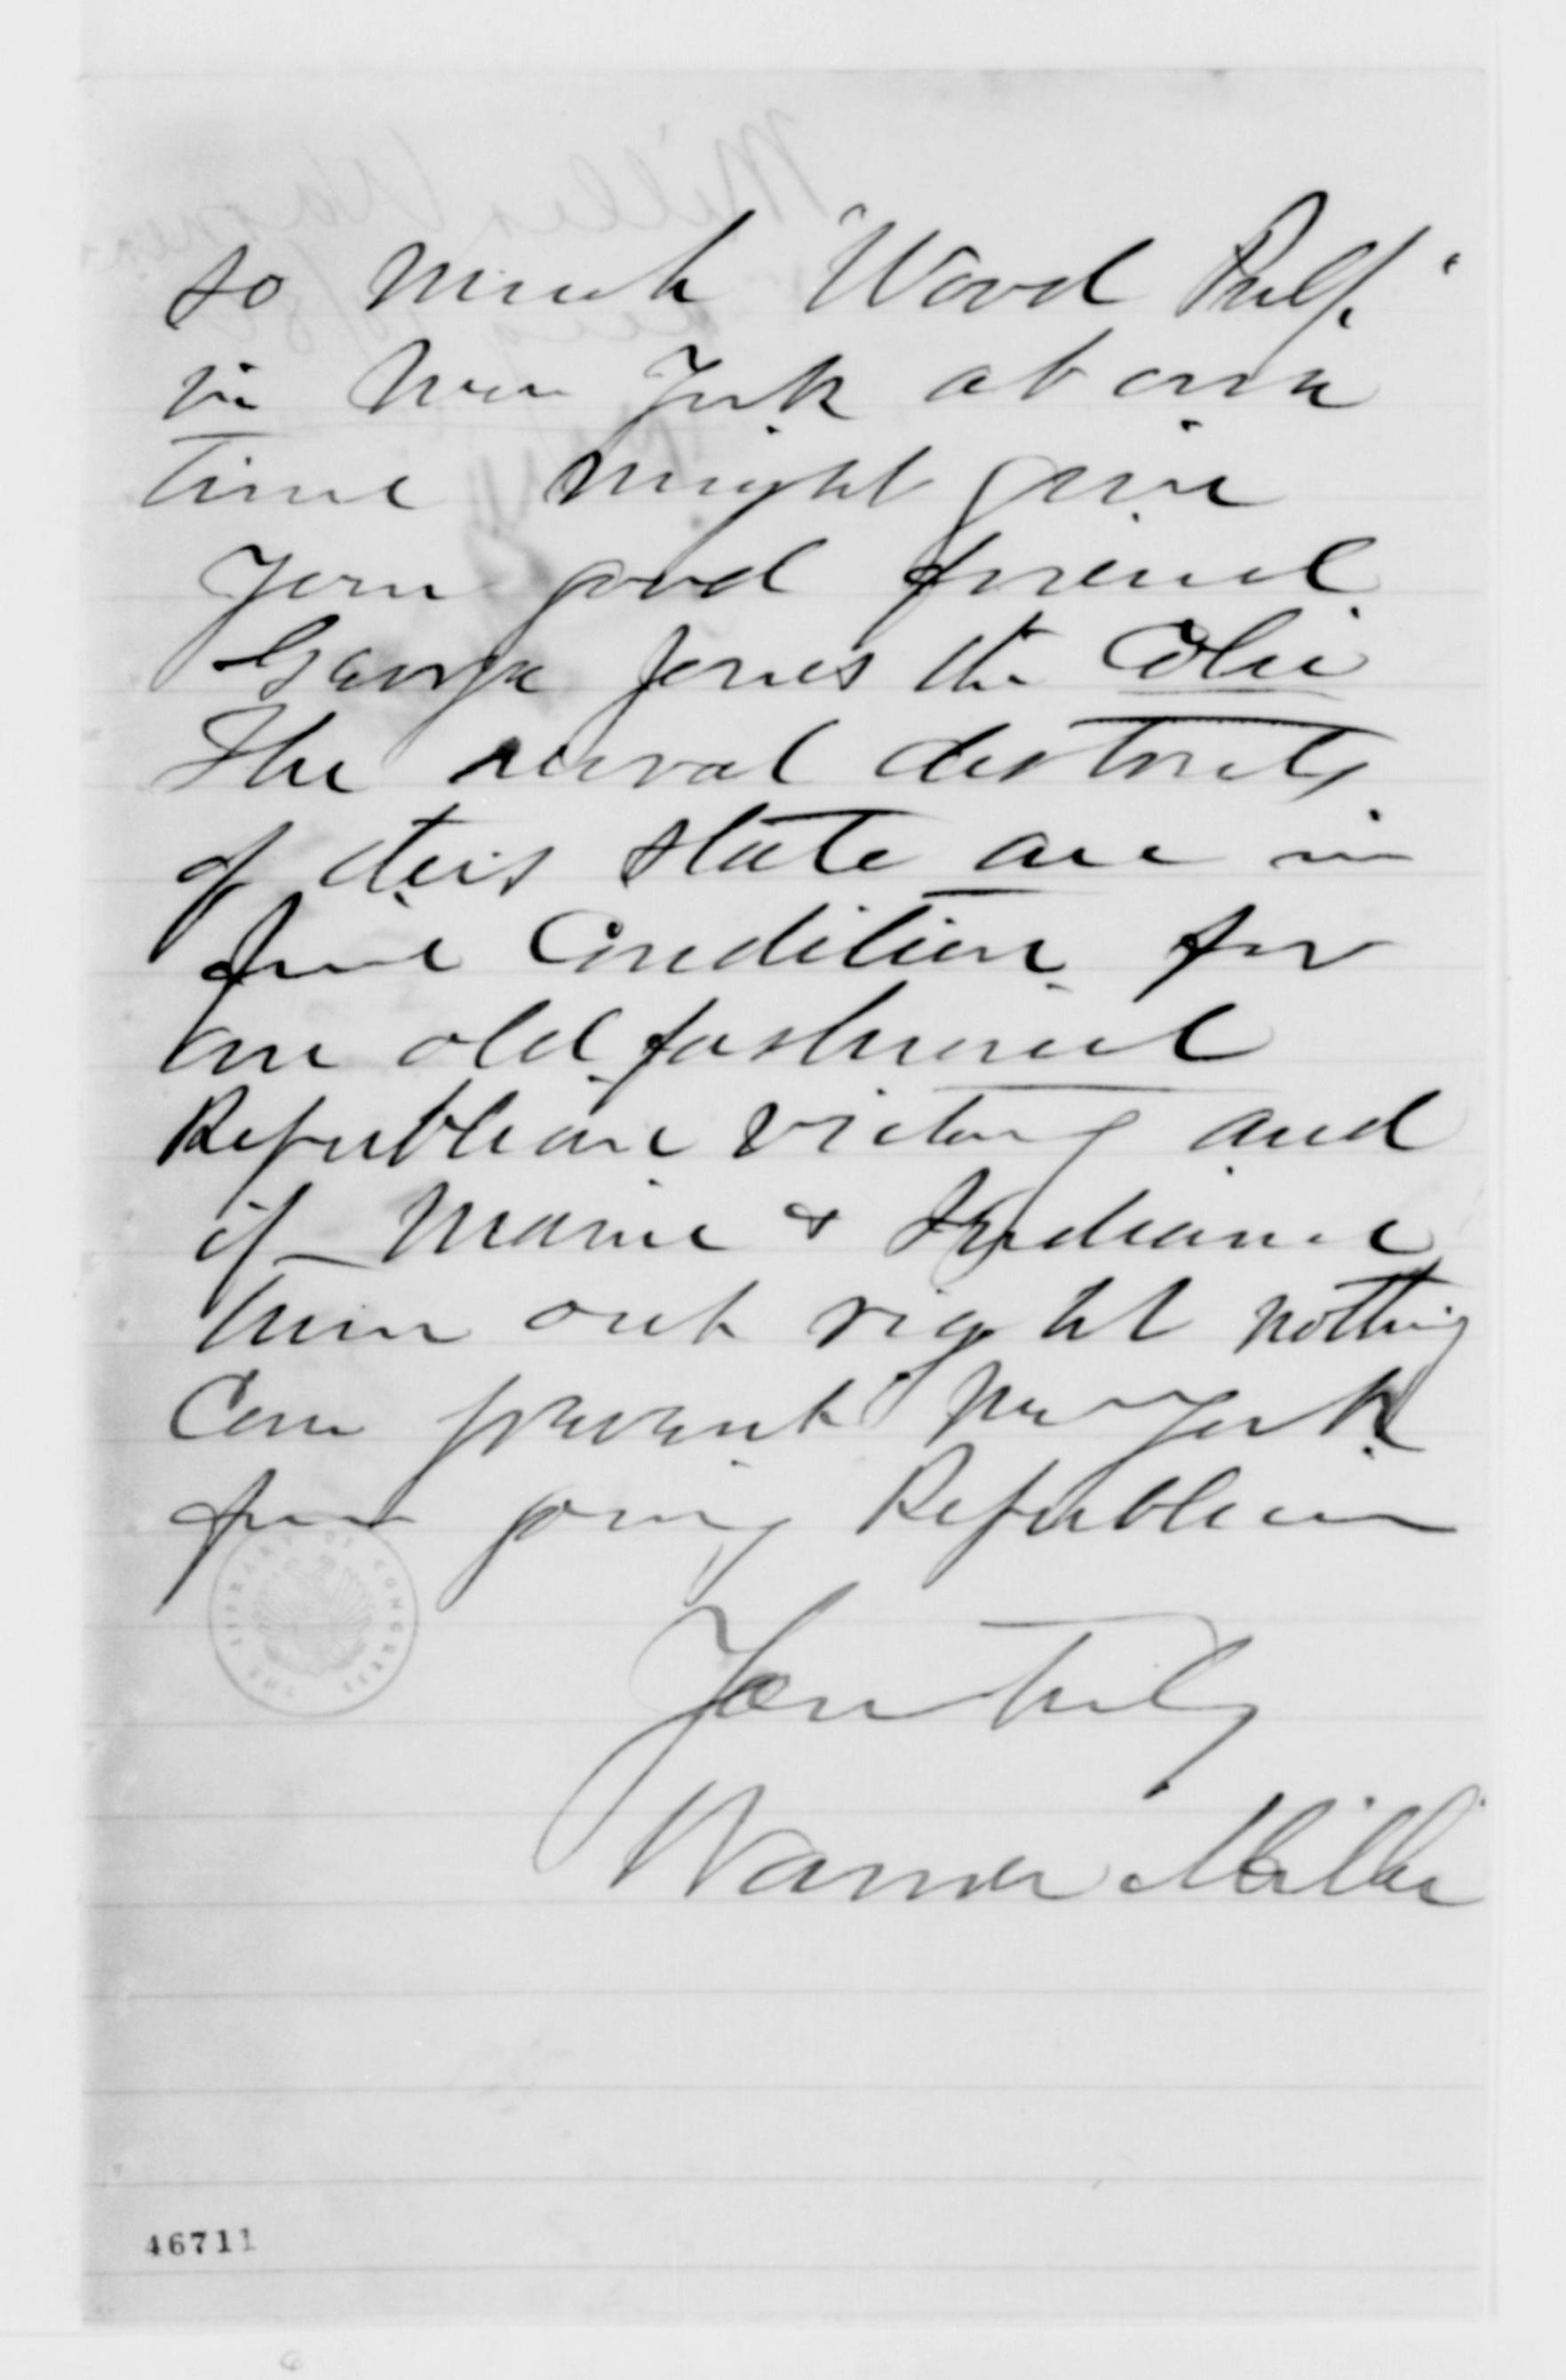 so much "Wood Pulp"
in New York at one
time might give
your good friend
George Jones the Colic
The rural districts
of this state are in
fine Condition for
an old fashioned
Republican victory and
if Maine & Indiana
turn out right nothing
Can prevent New York
from going Republican
Yours truly
Warner Miller
THE LIBRARY OF CONGRESS
46711